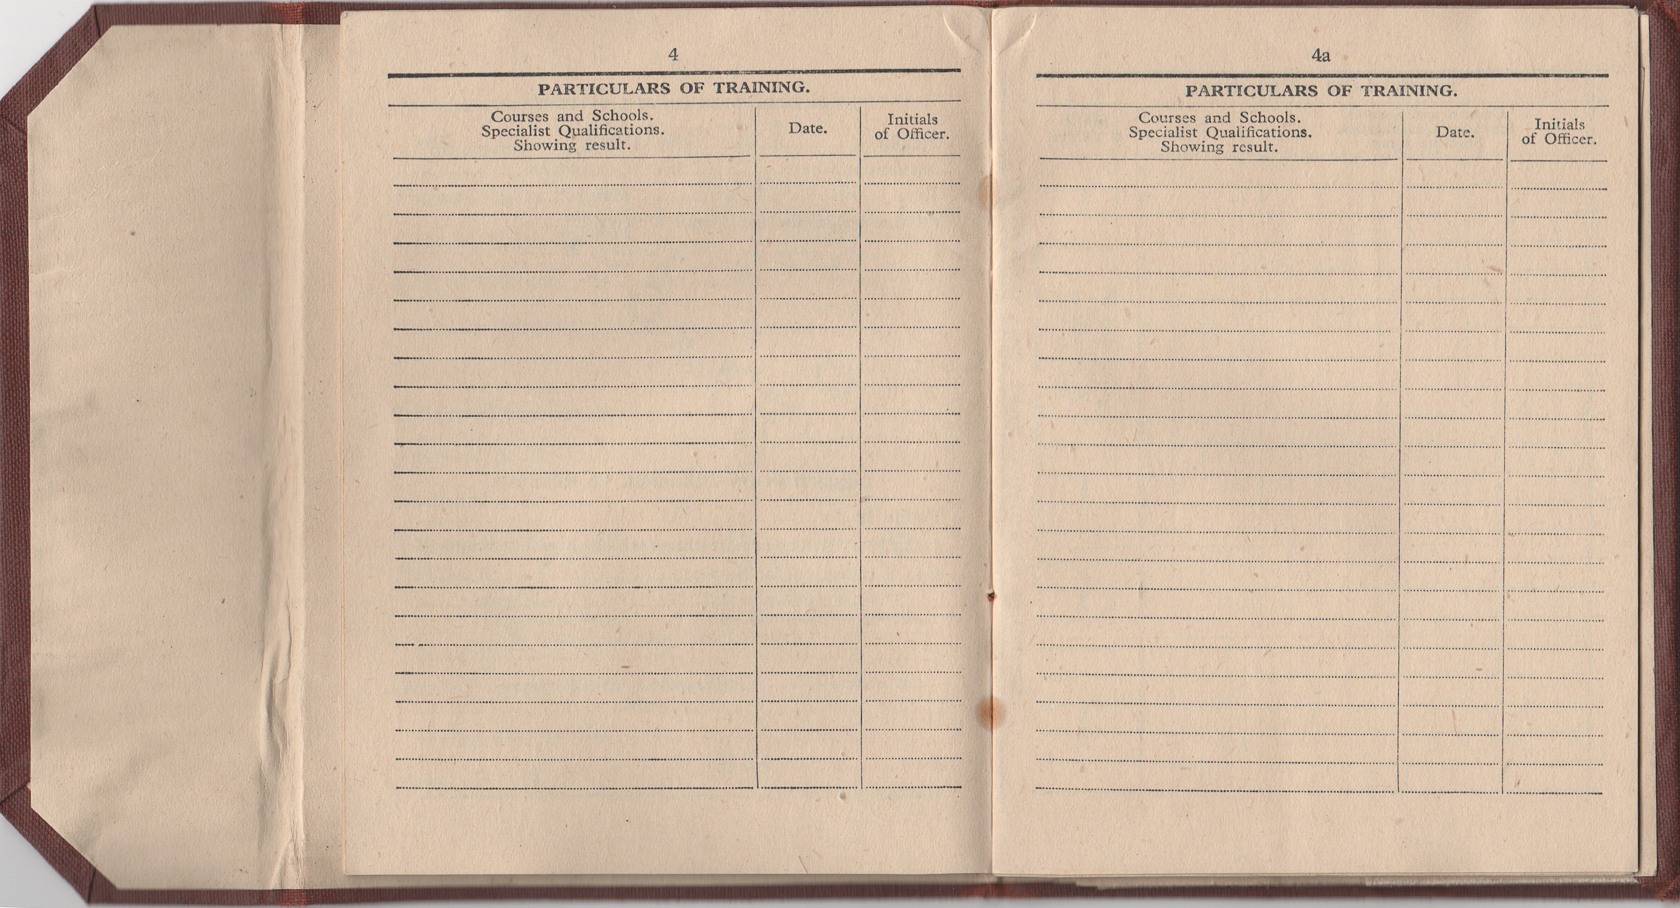 4
PARTICULARS OF TRAINING.
Courses and Schools.
Specialist Qualifications.
Showing result.
Date.
Initials
of Officer.
4a
PARTICULARS OF TRAINING.
Courses and Schools.
Specialist Qualifications.
Showing result.
Date.
Initials
of Officer.